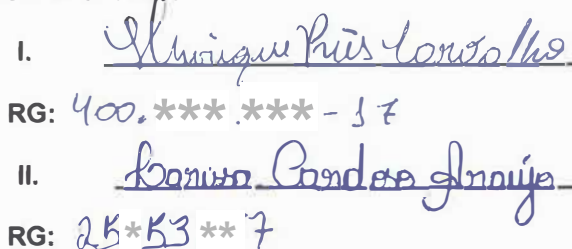 I. Henrique Pires Carvalho
RG: 400.***.***-17
II. Larissa Cardoso Araujo
RG: 25*53**7